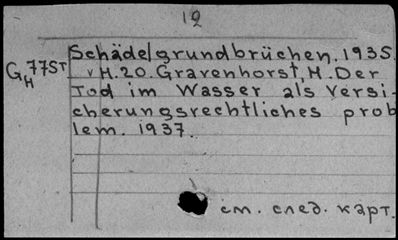 12
Schädelgrundbrüchen. 1935.
G H 77ST
v H.20. Gravenhorst, H. Der
Tod im Wasser als Versi-
cherungsrechtliches prob
lem. 1937.
см. след. карт.